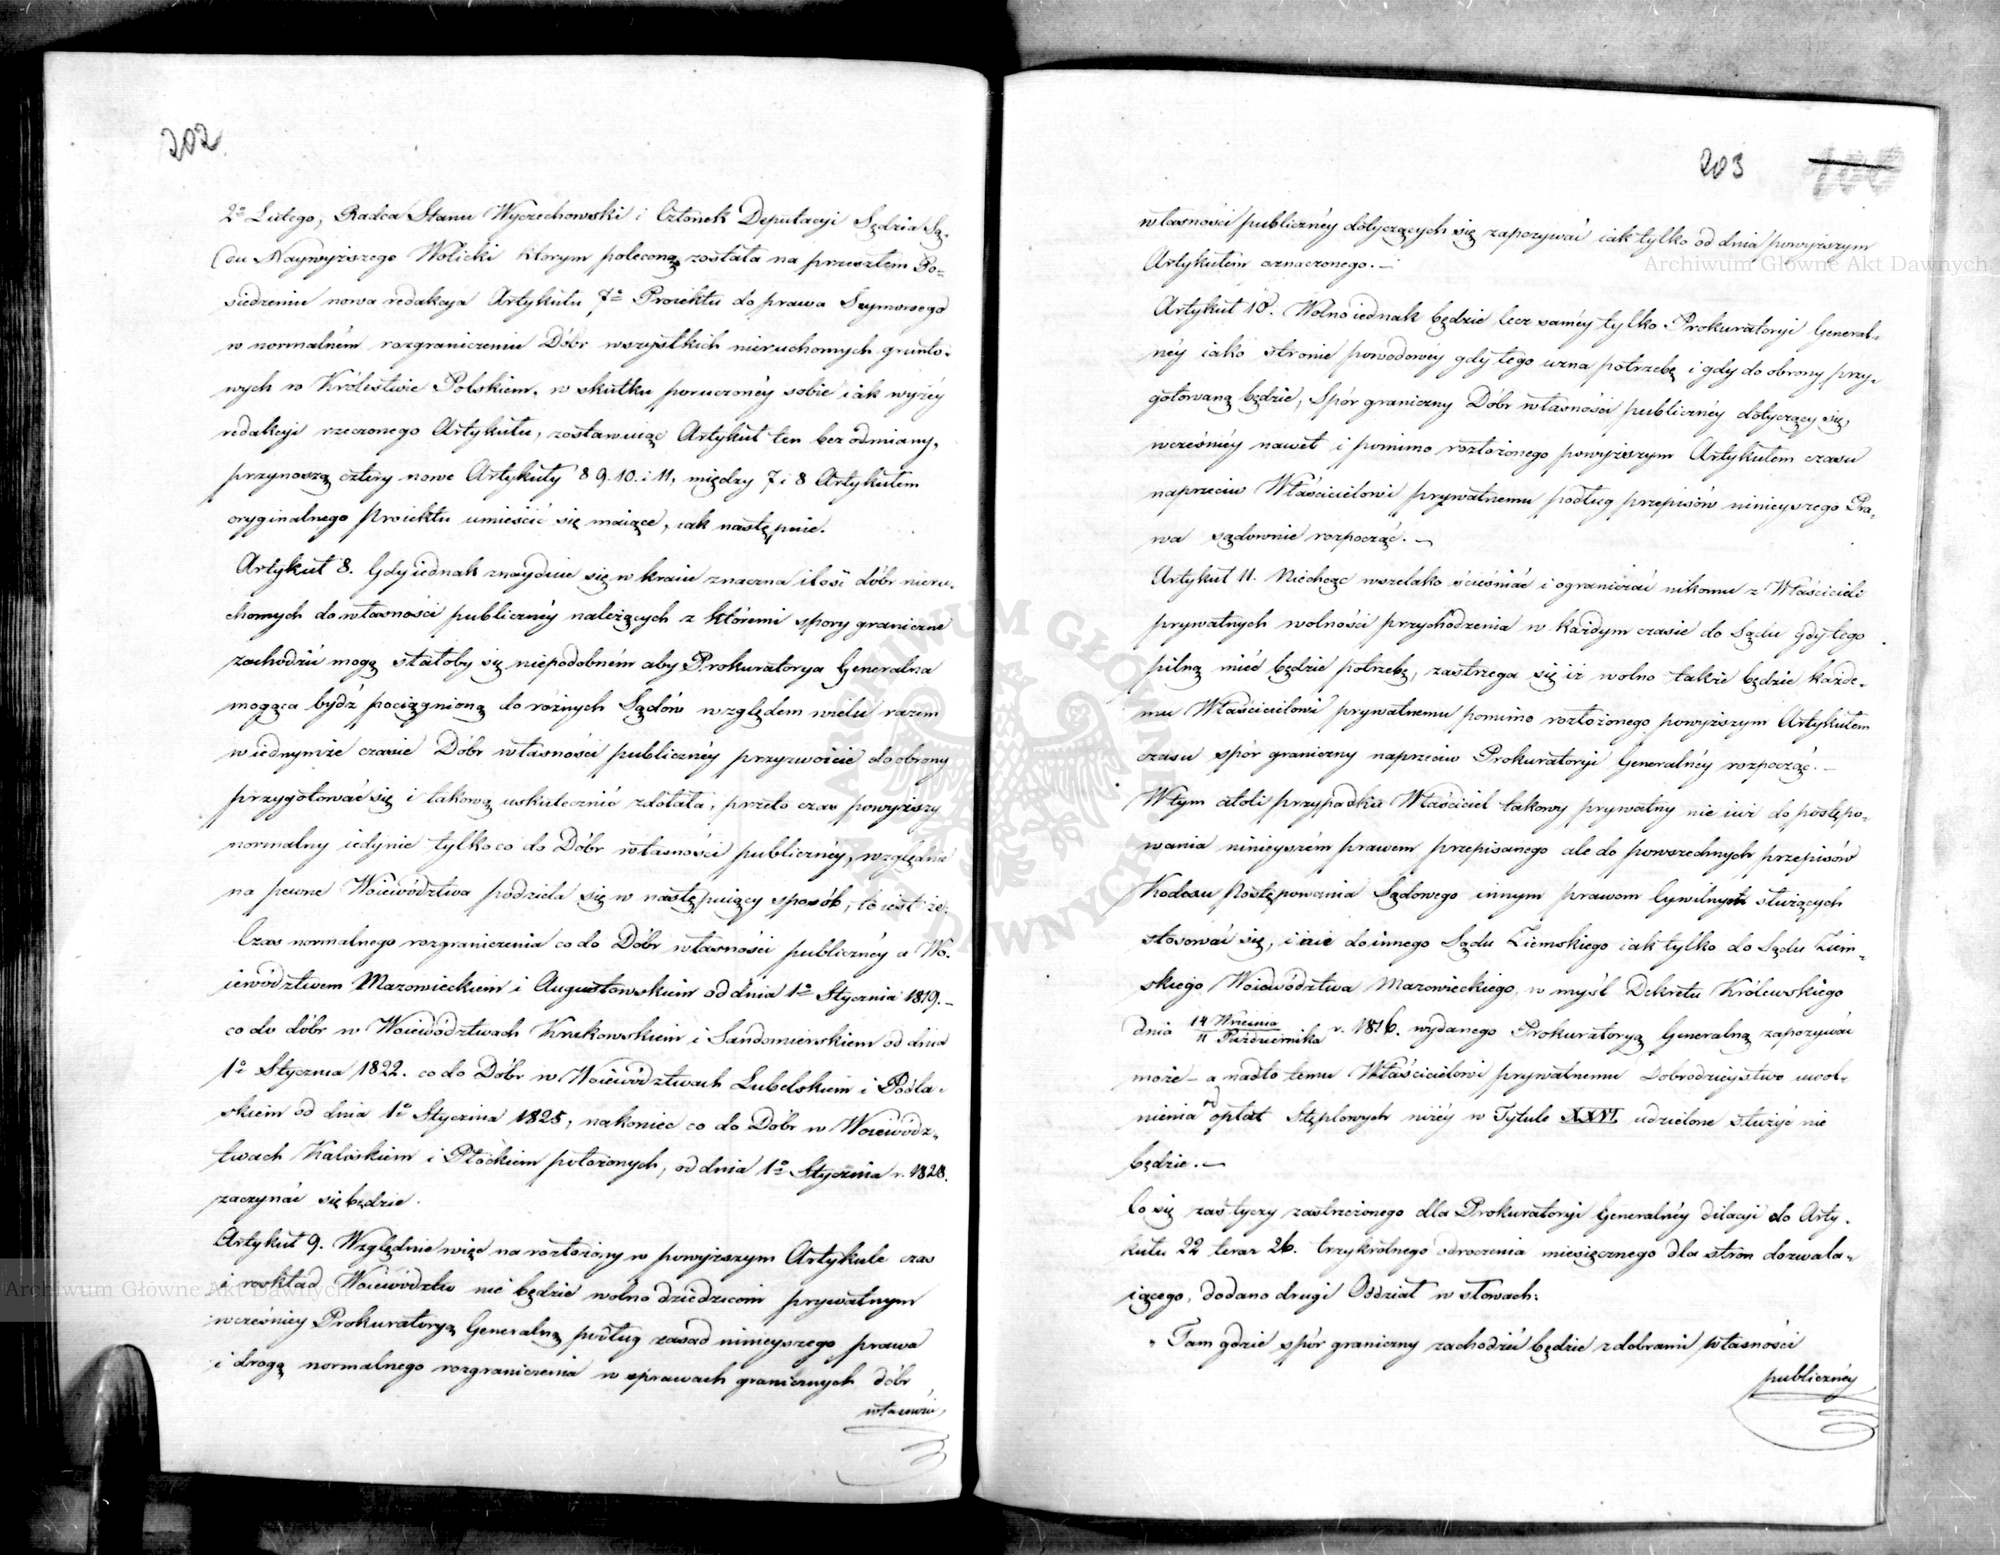 202.
2º Lutego, Radca Stanu Wyczechowski i Członek Deputacyi Sędzia Są-
du Naywyższego Wolicki którym poleconą została na przeszłem Po-
siedzeniu nowa redakcya Artykułu 7º Proiektu do prawa Seymowego
o normalném rozgraniczeniu Dóbr wszystkich nieruchomych grunto-
wych w Królestwie Polskiem, w skutku poruczonéy sobie iak wyżéy
redakcyi rzeczonego Artykułu, zostawuiąc Artykuł ten bez odmiany,
przynoszą cztéry nowe Artykuły 8 9. 10. i 11, między 7 i 8 Artykułem
oryginalnego Proiektu umieścić się maiące, iak następuie.
Artykuł 8. Gdy iednak znayduie się w kraiu znaczna ilość dóbr nieru-
chomych do własności publicznéy należących z któremi spory graniczne
zachodzić mogą stałoby się niepodobném aby Prokuratorya Generalna
mogąca bydź pociągnioną do różnych Sądów względem wielu razem
w iednymże czasie Dóbr własności publicznéy przyzwoicie do obrony
przygotować się i takową uskutecznić zdołała, przeto czas powyższy
normalny iedynie tylko co do Dóbr własności publicznéy, względnie
na pewne Województwa podziela się w następuiący sposób, to iest że:
Czas normalnego rozgraniczenia co do Dóbr własności publicznéy a Wo-
iewództwem Mazowieckiem i Augustowskiem od dnia 1º Stycznia 1819. –
co do dóbr w Woiewództwach Krakowskiem i Sandomierskiem od dnia
1º Stycznia 1822. co do Dóbr w Woiewództwach Lubelskiem i Podla-
skiem od dnia 1º Stycznia 1825, nakoniec co do Dóbr w Woiewódz-
twach Kaliskiem i Płockiem położonych, od dnia 1º Stycznia r. 1828.
zaczynać się będzie.
Artykuł 9. Względnie więc na rozłożony w powyższym Artykule czas
i rozkład Woiewództw nie będzie wolno dziedzicom prywatnym
wcześniey Prokuratoryą Generalną podług zasad ninieyszego prawa
i drogą normalnego rozgraniczenia w sprawach granicznych dóbr
własności
203 100
własności publicznéy dotyczących się zapozywać iak tylko od dnia powyższym
Artykułem oznaczonego. –
Artykuł 10. Wolno iednak będzie lecz saméy tylko Prokuratoryi General-
néy iako stronie powodowey gdy tego uzna potrzebę i gdy do obrony przy-
gotowaną będzie, Spór graniczny Dóbr własności publicznéy dotyczący się,
wcześniéy nawet i pomimo rozłożonego powyższym Artykułem czasu
naprzeciw Właścicielowi prywatnemu podług przepisów ninieyszego Pra-
wa sądownie rozpocząć. –
Artykuł 11. Niechcąc wszelako ścieśniać i ograniczać nikomu z Właścicieli
prywatnych wolności przychodzenia w każdym czasie do Sądu gdy tego
pilną mieć będzie potrzebę, zastrzega się iż wolno także będzie każde-
mu Właścicielowi prywatnemu pomimo rozłożonego powyższym Artykułem
czasu spór graniczny naprzeciw Prokuratoryi Generalnéy rozpocząć. –
W tym atoli przypadku Właściciel takowy prywatny nie iuż do postępo-
wania ninieyszém prawem przepisanego ale do powszechnych przepisów
Kodexu Postępowania Sądowego innym prawom Cywilnym służących
stosować się, i nie do innego Sądu Ziemskiego iak tylko do Sądu Ziem-
skiego Woiewództwa Mazowieckiego, w myśl Dekretu Królewskiego
dnia 14 Września / 11 Października r. 1816. wydanego Prokuratoryą Generalną zapozywać
może – a nadto temu Właścicielowi prywatnemu Dobrodzieystwo uwol-
nienia od opłat Stęplowych niżéy w Tytule XXVI. udzielone służyć nie
będzie. –
Co się zaś tyczy zastrzeżonego dla Prokuratoryi Generalnéy dilacyi do Arty-
kułu 22 teraz 26. trzykrotnego odroczenia miesięcznego dla stron dozwala-
iącego, dodano drugi Oddział w słowach:
" Tam gdzie spór graniczny zachodzić będzie z dobrami własności
publicznéy
Archiwum Główne Akt Dawnych
Archiwum Główne Akt Dawnych
ARCHIWUM GŁÓWNE AKT DAWNYCH